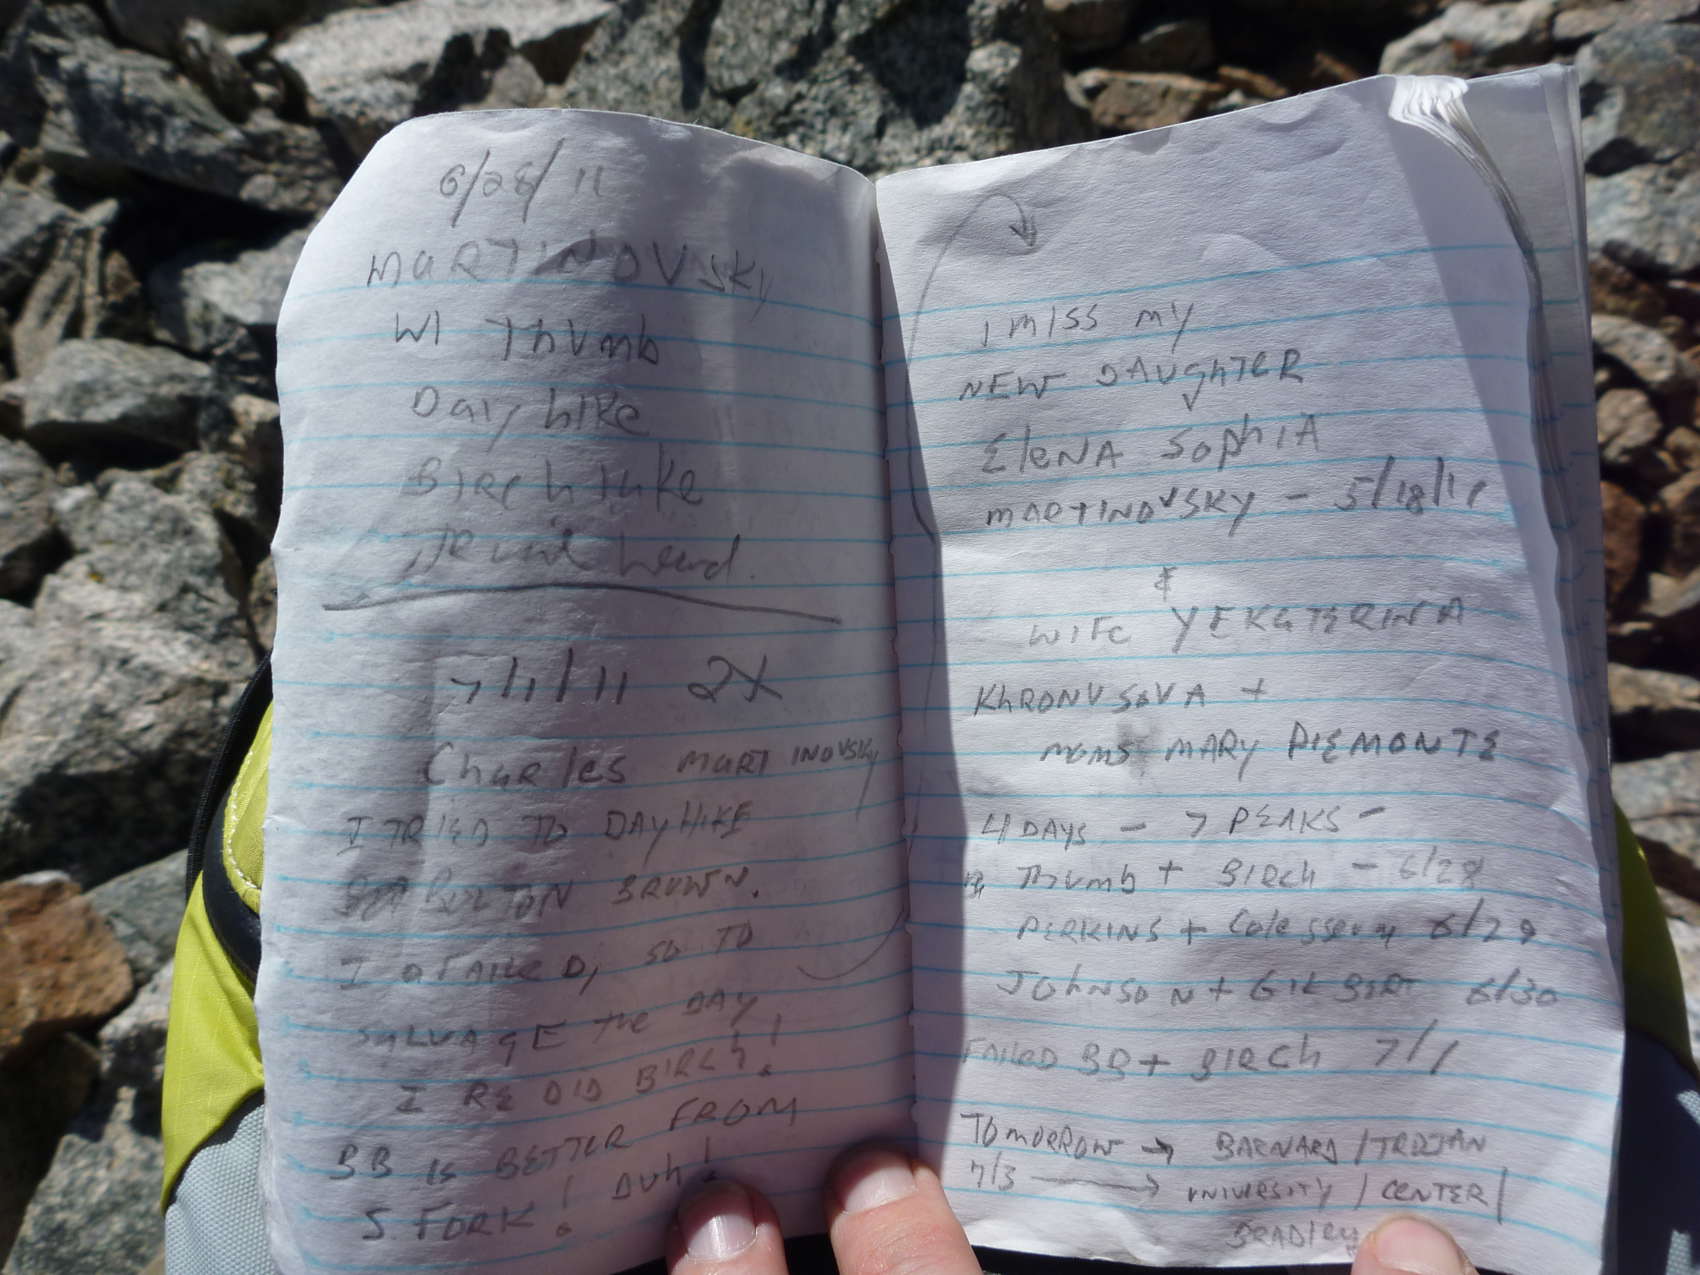 6/28/11
MARTINOVSKY
W/ Thumb
Day hike
Birch
head.
7/1/11 2X
Charles MARTINOVSKY
I TRIED TO DAYHIKE
BURTON BROWN.
I FAILED, SO TO
SALVAGE the DAY
I RE DID BIRCh!
BB IS BETTER FROM
S FORK! DUh!
I MISS MY
NEW DAUghTER
ElENA SOPhIA
MARTINOVSKY - 5/18/11
&
WIFE YEKATERINA
KhRONUSOVA +
MOMS MARY PIEMONTE
4 DAYS - 7 PEAKS -
Thumb + BIRCh - 6/28
PERKINS + Colosseum 6/29
JOhNSON + GILBERT 6/30
FAILED BB + BIRCh 7/1
TOMORROW → BARNARD / TROJAN
7/3 → UNIVERSITY / CENTER /
BRADLEY